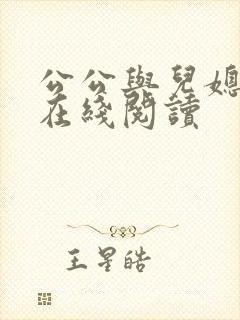 公公與兒媳
在綫閱讀
王星皓